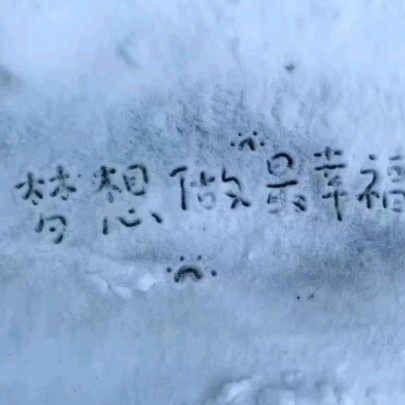 梦想做最幸福